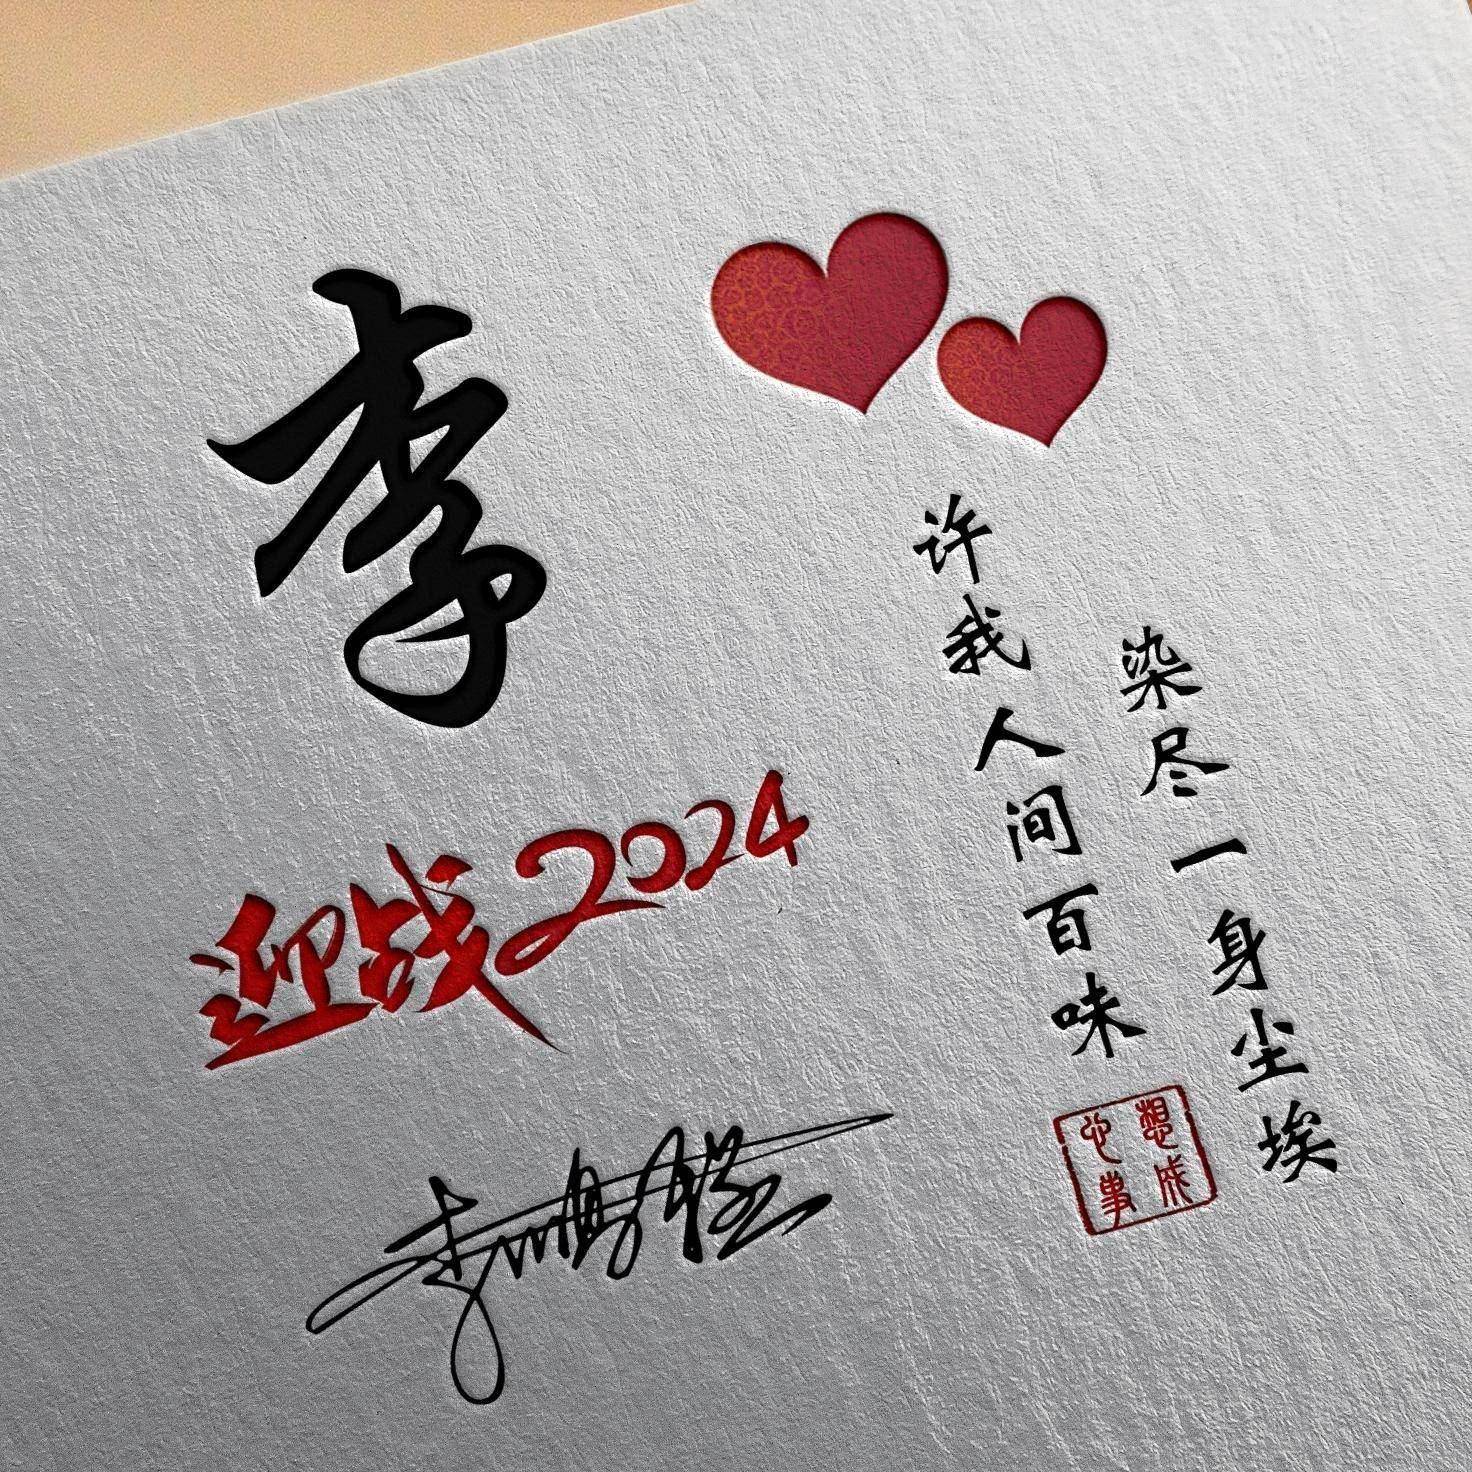 李
迎战2024
许我人间百味
染尽一身尘埃
想成
心事